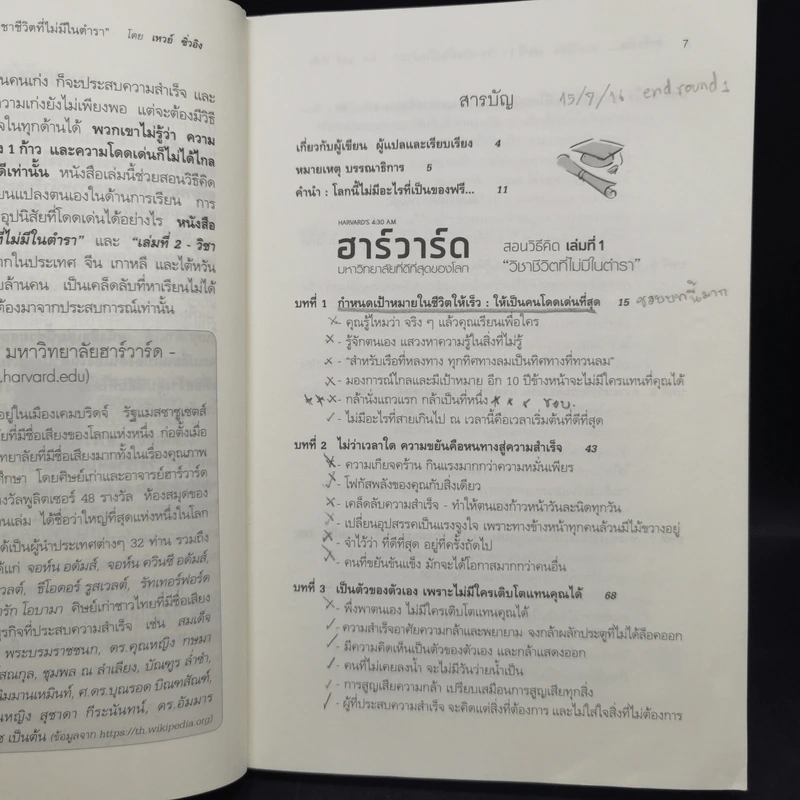 ชาชีวิตที่ไม่มีในตำรา" โดย เหวย์ ซิ่วอิง
นคนเก่ง ก็จะประสบความสำเร็จ และ
วามเก่งยังไม่เพียงพอ แต่จะต้องมีวิธี
จในทุกด้านได้ พวกเขาไม่รู้ว่า ความ
1 ก้าว และความโดดเด่นก็ไม่ได้ไกล
ดีเท่านั้น หนังสือเล่มนี้ช่วยสอนวิธีคิด
ยนแปลงตนเองในด้านการเรียน การ
อุปนิสัยที่โดดเด่นได้อย่างไร หนังสือ
ที่ไม่มีในตำรา" และ "เล่มที่ 2 - วิชา
ากในประเทศ จีน เกาหลี และไต้หวัน
ยล้านคน เป็นเคล็ดลับที่หาเรียนไม่ได้
ต้องมาจากประสบการณ์เท่านั้น
มหาวิทยาลัยฮาร์วาร์ด -
.harvard.edu)
อยู่ในเมืองเคมบริดจ์ รัฐแมสซาชูเซตส์
ลัยที่มีชื่อเสียงของโลกแห่งหนึ่ง ก่อตั้งเมื่อ
ทยาลัยที่มีชื่อเสียงมากทั้งในเรื่องคุณภาพ
ศึกษา โดยศิษย์เก่าและอาจารย์ฮาร์วาร์ด
งวัลพูลิตเซอร์ 48 รางวัล ห้องสมุดของ
นเล่ม ได้ชื่อว่าใหญ่ที่สุดแห่งหนึ่งในโลก
ด้เป็นผู้นำประเทศต่างๆ 32 ท่าน รวมถึง
ได้แก่ จอห์น อดัมส์, จอห์น ควินซี อดัมส์,
เวลต์, ธีโอดอร์ รูสเวลต์, รัทเทอร์ฟอร์ด
ารัก โอบามา ศิษย์เก่าชาวไทยที่มีชื่อเสียง
ธุรกิจที่ประสบความสำเร็จ เช่น สมเด็จ
พระบรมราชชนก, ดร.คุณหญิง กษมา
สณกุล, ชุมพล ณ ลำเลียง, บัณฑูร ล่ำซำ,
นิมมานเหมินท์, ศ.ดร.บุญรอด บิณฑสัณฑ์,
นหญิง สุชาดา กีระนันทน์, ดร.อัมมาร
เป็นต้น (ข้อมูลจาก https://th.wikipedia.org)
7
สารบัญ 15/9/16 end round 1
เกี่ยวกับผู้เขียน ผู้แปลและเรียบเรียง 4
หมายเหตุ บรรณาธิการ 5
คำนำ : โลกนี้ไม่มีอะไรที่เป็นของฟรี... 11
HARVARD'S 4:30 A.M.
ฮาร์วาร์ด
มหาวิทยาลัยที่ดีที่สุดของโลก
สอนวิธีคิด เล่มที่ 1
"วิชาชีวิตที่ไม่มีในตำรา"
บทที่ 1 กำหนดเป้าหมายในชีวิตให้เร็ว : ให้เป็นคนโดดเด่นที่สุด 15 ชอบบทนี้มาก
- คุณรู้ไหมว่า จริง ๆ แล้วคุณเรียนเพื่อใคร
- รู้จักตนเอง แสวงหาความรู้ในสิ่งที่ไม่รู้
- "สำหรับเรือที่หลงทาง ทุกทิศทางลมเป็นทิศทางที่ทวนลม"
- มองการณ์ไกลและมีเป้าหมาย อีก 10 ปีข้างหน้าจะไม่มีใครแทนที่คุณได้
- กล้านั่งแถวแรก กล้าเป็นที่หนึ่ง ชอบ
- ไม่มีอะไรที่สายเกินไป ณ เวลานี้คือเวลาเริ่มต้นที่ดีที่สุด
บทที่ 2 ไม่ว่าเวลาใด ความขยันคือหนทางสู่ความสำเร็จ 43
- ความเกียจคร้าน กินแรงมากกว่าความหมั่นเพียร
- โฟกัสพลังของคุณกับสิ่งเดียว
- เคล็ดลับความสำเร็จ - ทำให้ตนเองก้าวหน้าวันละนิดทุกวัน
- เปลี่ยนอุปสรรคเป็นแรงจูงใจ เพราะทางข้างหน้าทุกคนล้วนมีไม้ขวางอยู่
- จำไว้ว่า ที่ดีที่สุด อยู่ที่ครั้งถัดไป
- คนที่ขยันขันแข็ง มักจะได้โอกาสมากกว่าคนอื่น
บทที่ 3 เป็นตัวของตัวเอง เพราะไม่มีใครเติบโตแทนคุณได้ 68
- พึ่งพาตนเอง ไม่มีใครเติบโตแทนคุณได้
- ความสำเร็จอาศัยความกล้าและพยายาม จงกล้าผลักประตูที่ไม่ได้ล็อคออก
- มีความคิดเห็นเป็นตัวของตัวเอง และกล้าแสดงออก
- คนที่ไม่เคยลงน้ำ จะไม่มีวันว่ายน้ำเป็น
- การสูญเสียความกล้า เปรียบเสมือนการสูญเสียทุกสิ่ง
- ผู้ที่ประสบความสำเร็จ จะคิดแต่สิ่งที่ต้องการ และไม่ใส่ใจสิ่งที่ไม่ต้องการ